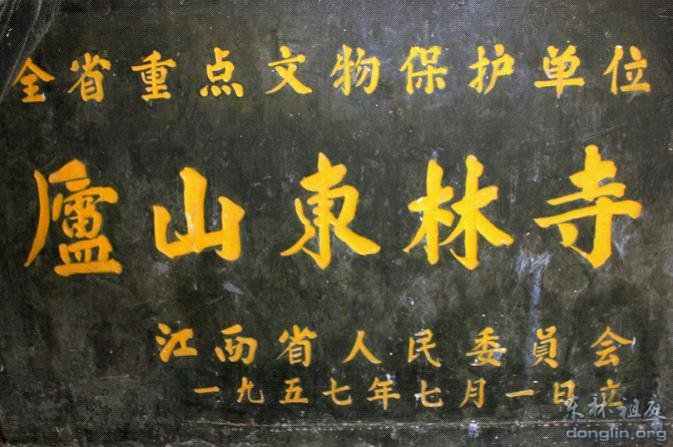 全省重点文物保护单位
廬山東林寺
江西省人民委員会
一九五七年七月一日立
东林祖庭
donglin.org